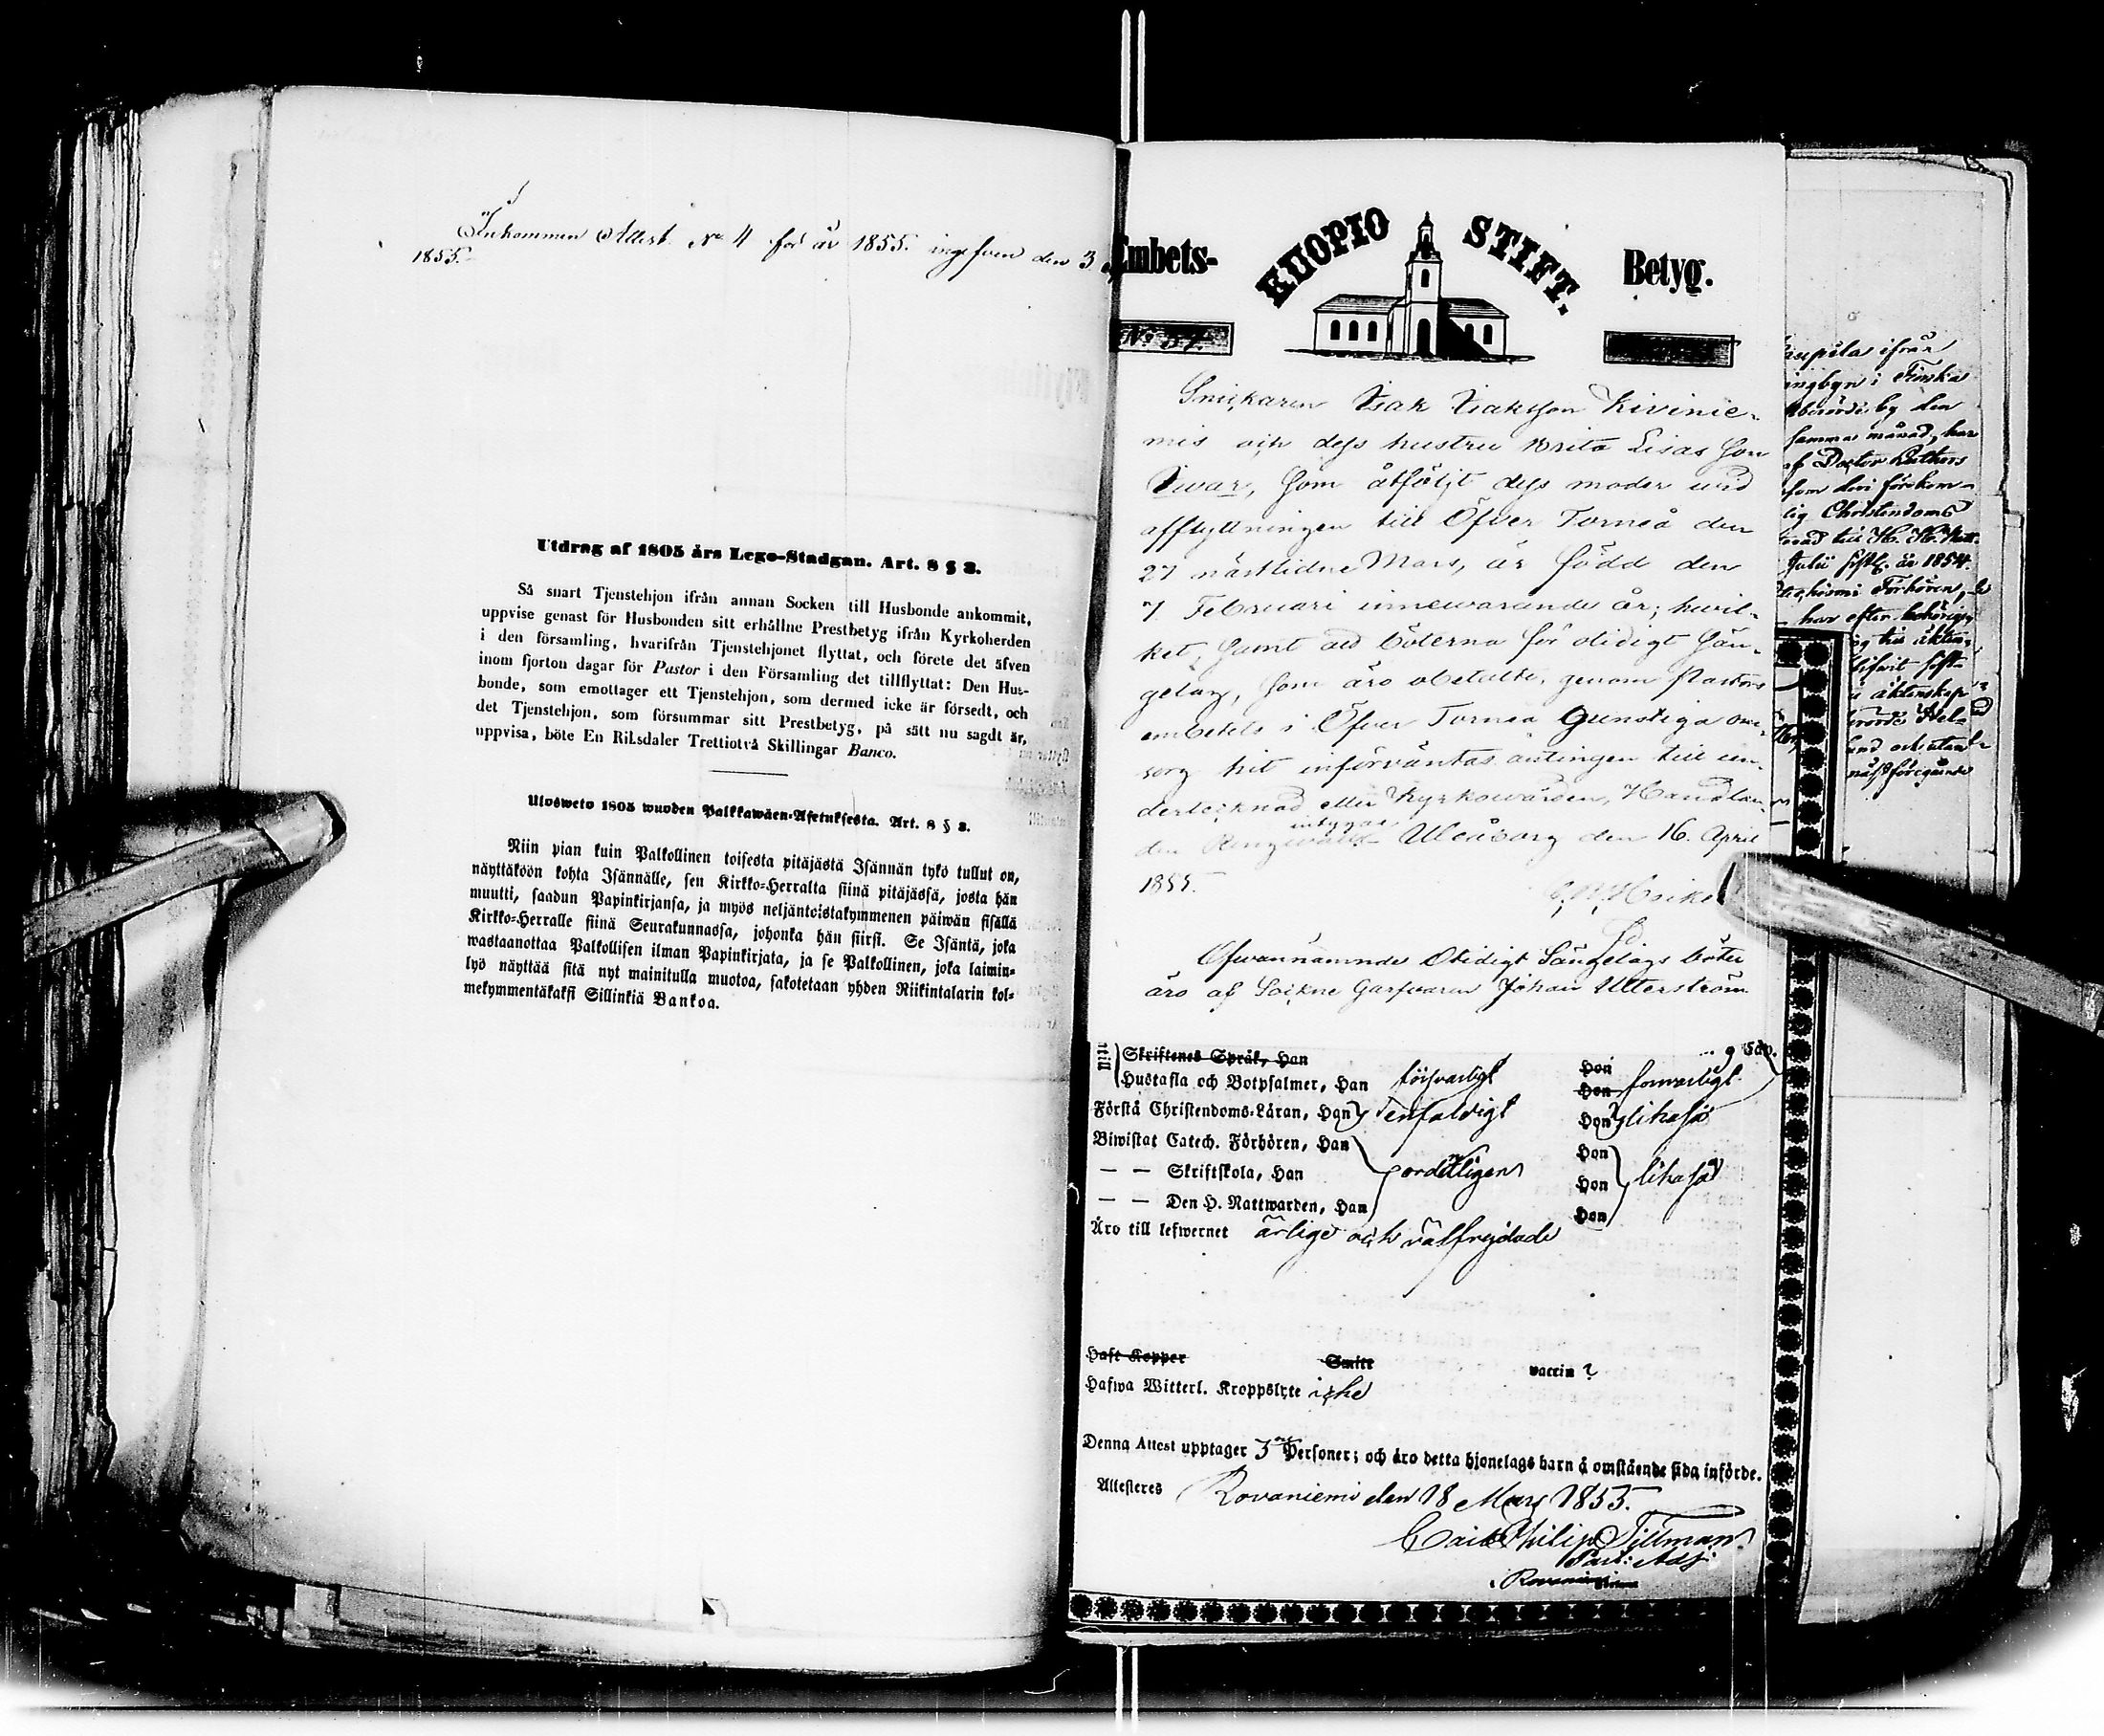 Inkommen Attest. No 4 för år 1855. ingifven den 3
1855.
Utdrag af 1805 års Lego-Stadgan. Art. 8 § 3.
Så snart Tjenstehjon ifrån annan Socken till Husbonde ankommit,
uppvise genast för Husbonden sitt erhållne Prestbetyg ifrån Kyrkoherden
i den församling, hvarifrån Tjenstehjonet flyttat, och förete det äfven
inom fjorton dagar för Pastor i den Församling det tillflyttat: Den Hus-
bonde, som emottager ett Tjenstehjon, som dermed icke är försedt, och
det Tjenstehjon, som försummar sitt Prestbetyg, på sätt nu sagdt är,
uppvisa, böte En Riksdaler Trettiotvå Skillingar Banco.
Ulosweto 1805 wuoden Palkkawäen-Asetuksesta. Art. 8 § 3.
Niin pian kuin Palkollinen toisesta pitäjästä Isännän tykö tullut on,
näyttäköön kohta Isännälle, sen Kirkko-Herralta siinä pitäjässä, josta hän
muutti, saadun Papinkirjansa, ja myös neljäntoistakymmenen päiwän sisällä
Kirkko-Herralle siinä Seurakunnassa, johonka hän siirsi. Se Isäntä, joka
wastaanottaa Palkollisen ilman Papinkirjata, ja se Palkollinen, joka laimin-
lyö näyttää sitä nyt mainitulla muotoa, sakotetaan yhden Riikintalarin kol-
mekymmentäkaksi Sillinkiä Bankoa.
Embets-
KUOPIO STIFT.
Betyg.
No 57.
Snickaren Isak Isaksson Kivinie-
mis och dess hustru Brita Lisas son
Ivar, som åtföljt dess moder wid
afflyttningen till Öfver Torneå den
27 nästlidne Mars, är född den
7. Februari innewarande år; hwil-
ket, samt att böterna för otidigt sän-
gelag, som äro obetalte, genom Pastors
embetets i Öfver Torneå gunstiga om-
sorg hit införväntas antingen till un-
dertecknad eller Kyrkowärden, Handlan-
den intygas Uleåborg den 16. April
1855.
Ofvannämnde Otidigt Sängelags böter
äro af Sockne Garfvaren Johan Utterström
Skriftenes Språk, Han
Hon
Hustafla och Botpsalmer, Han försvarligt Hon försvarligt
Förstå Christendoms-Läran, Han enfaldigt Hon likaså
Biwistat Catech. Förhören, Han Hon
— — Skriftskola, Han ordentligen Hon likaså
— — Den H. Nattwarden, Han Hon
Äro till lefwernet ärlige och välfrejdade
Haft Koppor Smitt vaccin ?
Hafwa Witterl. Kroppslyte icke
Denna Attest upptager 3ne Personer; och äro detta hjonelags barn å omstående sida införde.
Attesteres Rovaniemi den 18 Mars 1855.
Carl Philip Tillman.
Past: Adj:
Rovaniemi
ifrån
i Finska
by den
samma månad, har
af Doctor Luthers
Christendoms
Julii sistl. år 1854.
Förhören,
har efter behörig
äktenskap
nästföregående